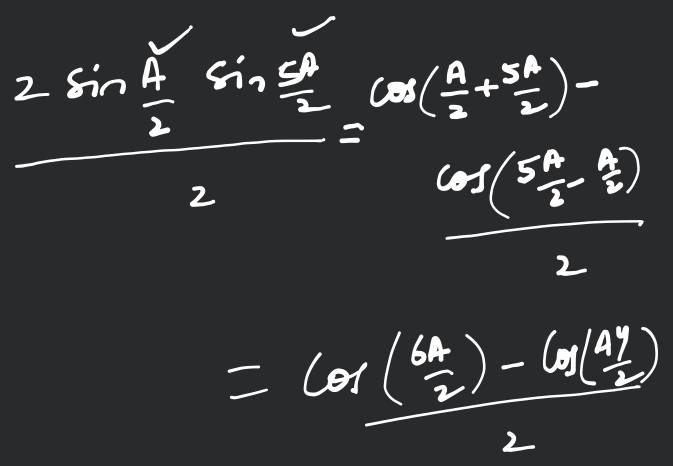 2 sin A/2 sin 5A/2 / 2 = cos(A/2 + 5A/2) -
cos(5A/2 - A/2) / 2
= cos(6A/2) - cos(A4/2) / 2